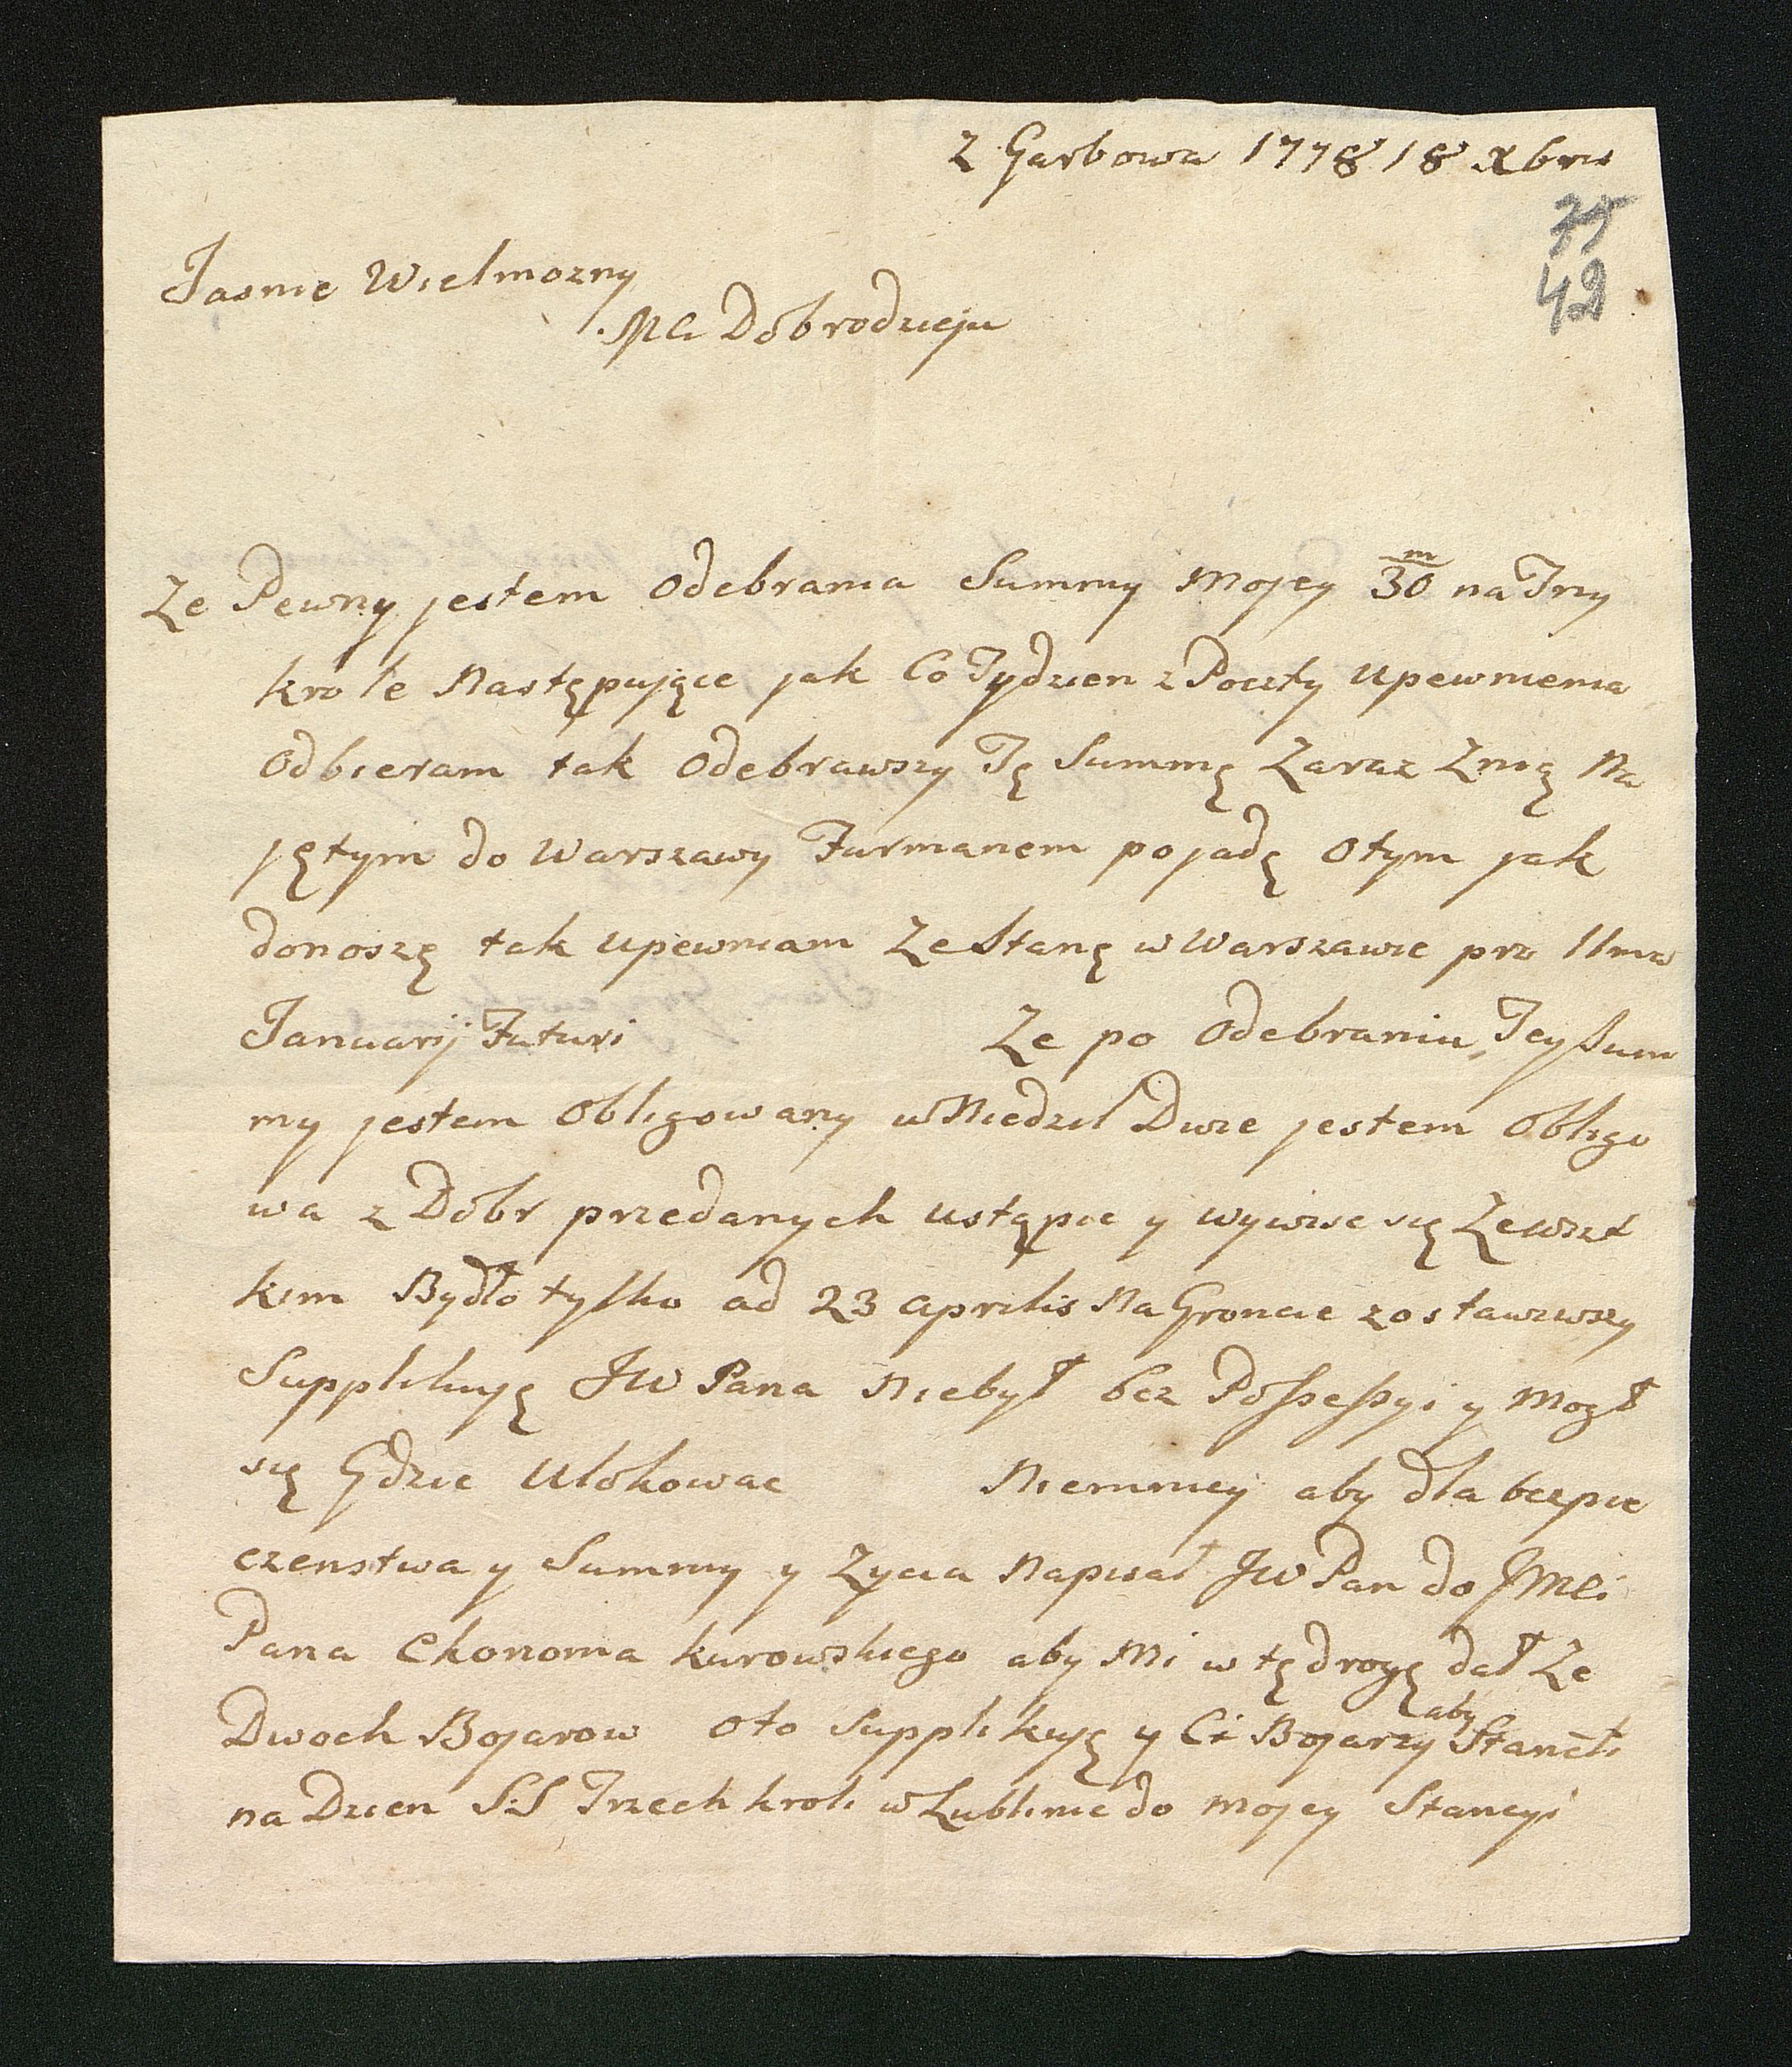 Z Garbowa 1778 18 Xbris
75
42
Jasnie Wielmozny
MCi Dobrodzieju
Ze Pewny jestem Odebrania Summy Mojey 30 m na Trzy
krole Następujące jak Co Tydzien z Poczty upewnienia
Odbieram tak Odebrawszy Tę Summę Zaraz Znią Na
jętym do Warszawy Furmanem pojadę Otym jak
donoszę tak upewniam Ze Stanę w Warszawie pro 11ma
Januarij Futuri Ze po Odebraniu Tey Sum
my jestem Obligowany w Niedziel Dwie jestem Obligo
wa z Dobr przedanych ustąpic y wywiesc się Zewszt
kim Bydło tylko ad 23 Aprilis Na Groncie zostawiwszy
Supplikuję JW Pana Niebył bez Possessyi y Mogł
się Gdzie Ulokowac Niemniey aby dla bezpie
czenstwa y Summy y Zycia Napisał JW Pan do JMCi
Pana Ekonoma Kurowskiego aby Mi w tę drogę dał Ze
Dwoch Bojarow Oto Supplikuję y Ci Bojarzy aby Staneli
na Dzien S.S Trzech kroli w Lublinie do mojey Stancyi